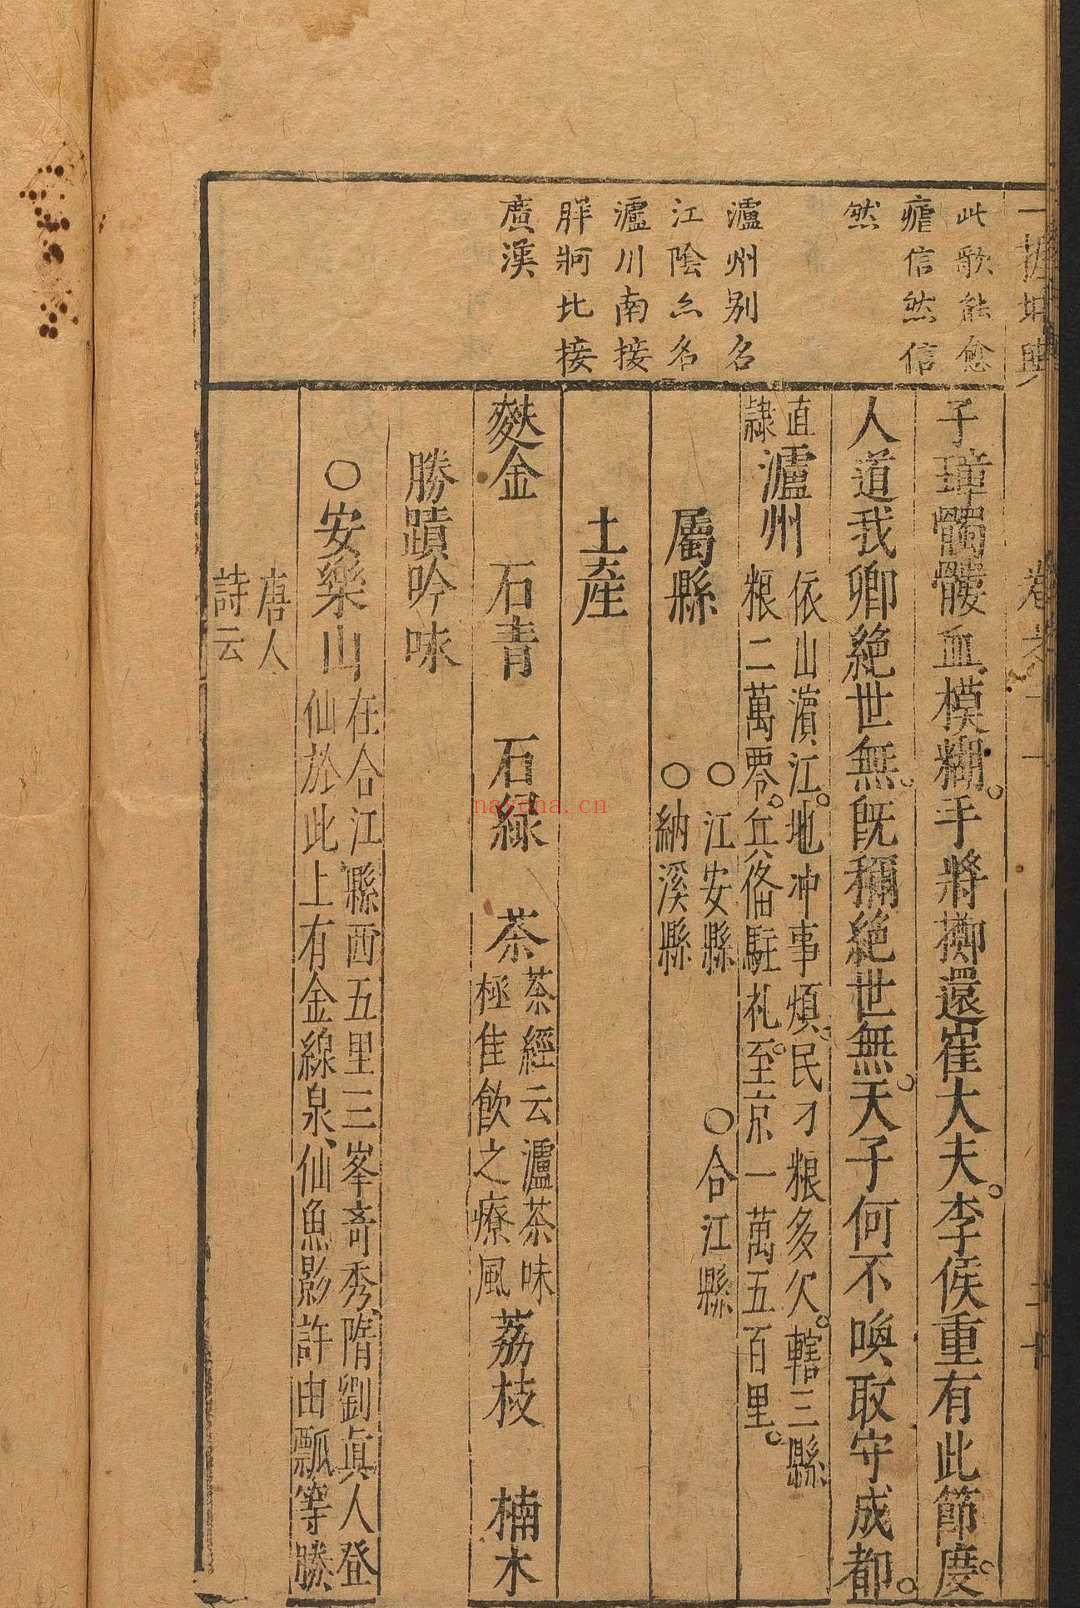 此歌能愈
瘧信然信
然
瀘州别名
江陰亦名
瀘川南接
牂牁比接
廣漢
子璋髑髏血模糊。手將擲還崔大夫。李侯重有此節度。
人道我卿絶世無。旣稱絶世無。天子何不喚取守成都。
直隷瀘州
依山濵江。地冲事煩。民刁粮多欠。轄三縣
粮二萬零。兵俻駐札。至京一萬五百里。
屬縣
○江安縣 ○合江縣
○納溪縣
土産
麩金 石青 石緑 茶
茶經云瀘茶味
極佳飲之療風
荔枝 楠木
勝蹟吟咏
○安樂山
在合江縣西五里三峯奇秀、隋劉眞人登
仙於此上有金線泉、仙魚影許由瓢等勝
唐人
詩云
nayona.cn